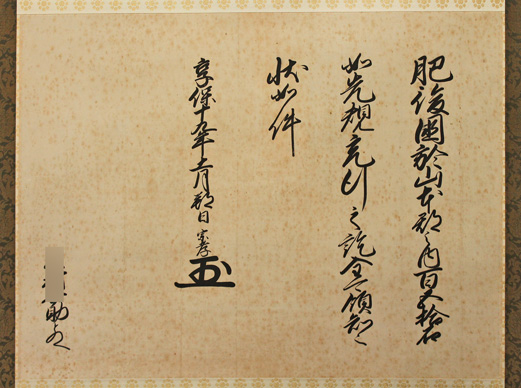 肥後國於山本郡之内百五拾石
如先規充行之訖全可領知之
状如件
享保十九年 月朔日 宗孝
助